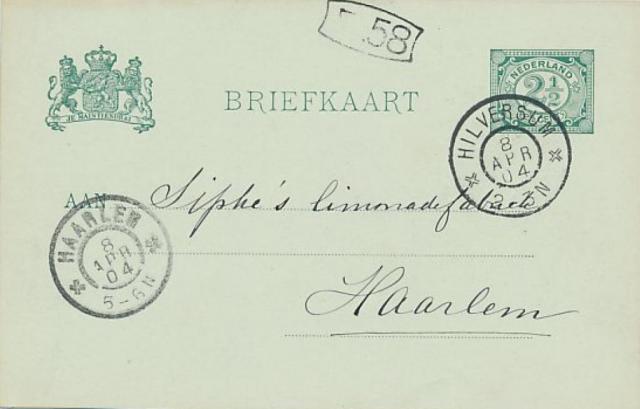 58
NEDERLAND
2½
BRIEFKAART
JE MAINTIENDRAI
HILVERSUM
8
APR
04
2-3N
AAN Siphe's limonadefabriek
HAARLEM
8
APR
04
5-6N
Haarlem